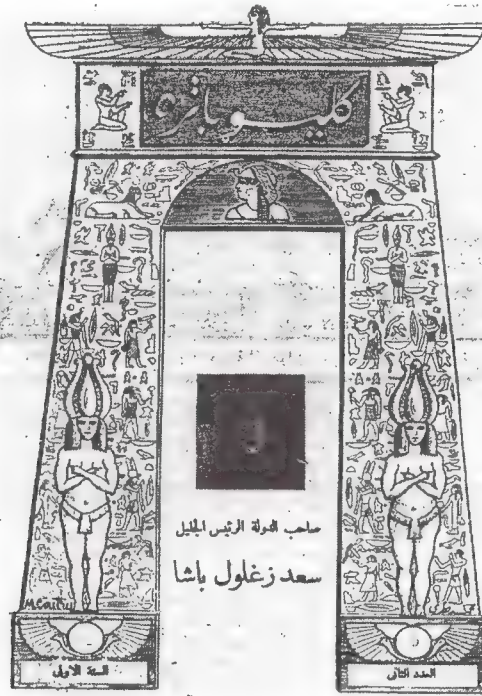 كليوباترة
صاحب الدولة الرئيس الجليل
سعد زغلول باشا
العدد الثانى
السنة الاولى